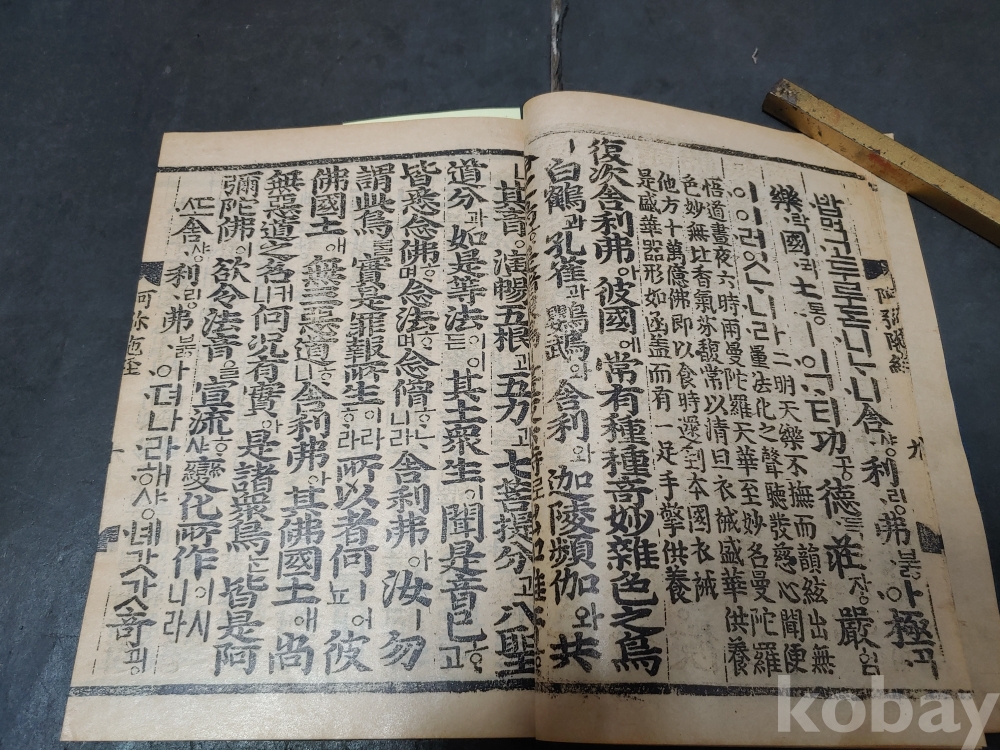 밥먹고두루ᄃᆞᆮ니ᄂᆞ니舍샹利링弗붏아極끅
樂락國귁土통ㅣ이러틔功공德득莊장嚴엄
이이러ᄉᆞ니라
二明天樂不撫而韻絃出無
量法化之聲聽發慈心聞便
悟道晝夜六時雨曼陀羅天華至妙名曼陀羅
色妙無比香氣芬馥常以清旦衣裓盛華供養
他方十萬億佛即以食時還到本國衣裓
是盛華器形如函盖而有一足手擎供養
復次舍利弗아彼國에常有種種奇妙雜色之鳥
ㅣ白鶴과孔雀과鸚鵡와舍利와迦陵頻伽와共
其音이演暢五根과五力과七菩提分과八聖
道分과如是等法이어든其土衆生이聞是音已ᄒᆞ고
皆悉念佛ᄒᆞ며念法ᄒᆞ며念僧ᄒᆞᄂᆞ니라舍利弗아汝ㅣ勿
謂此鳥를實是罪報所生이라ᄒᆞ라所以者何ㅣ어뇨彼
佛國土애無三惡道ᄒᆞ니舍利弗아其佛國土애尚
無惡道之名커니何況有實가是諸衆鳥ㅣ皆是阿
彌陀佛이欲令法音을宣流ᄒᆞ샤變化所作이시니라
ᄯᅩ舍샹利링弗붏아뎌나라해샹녜갓가奇끵
阿弥陀經
九
kobay